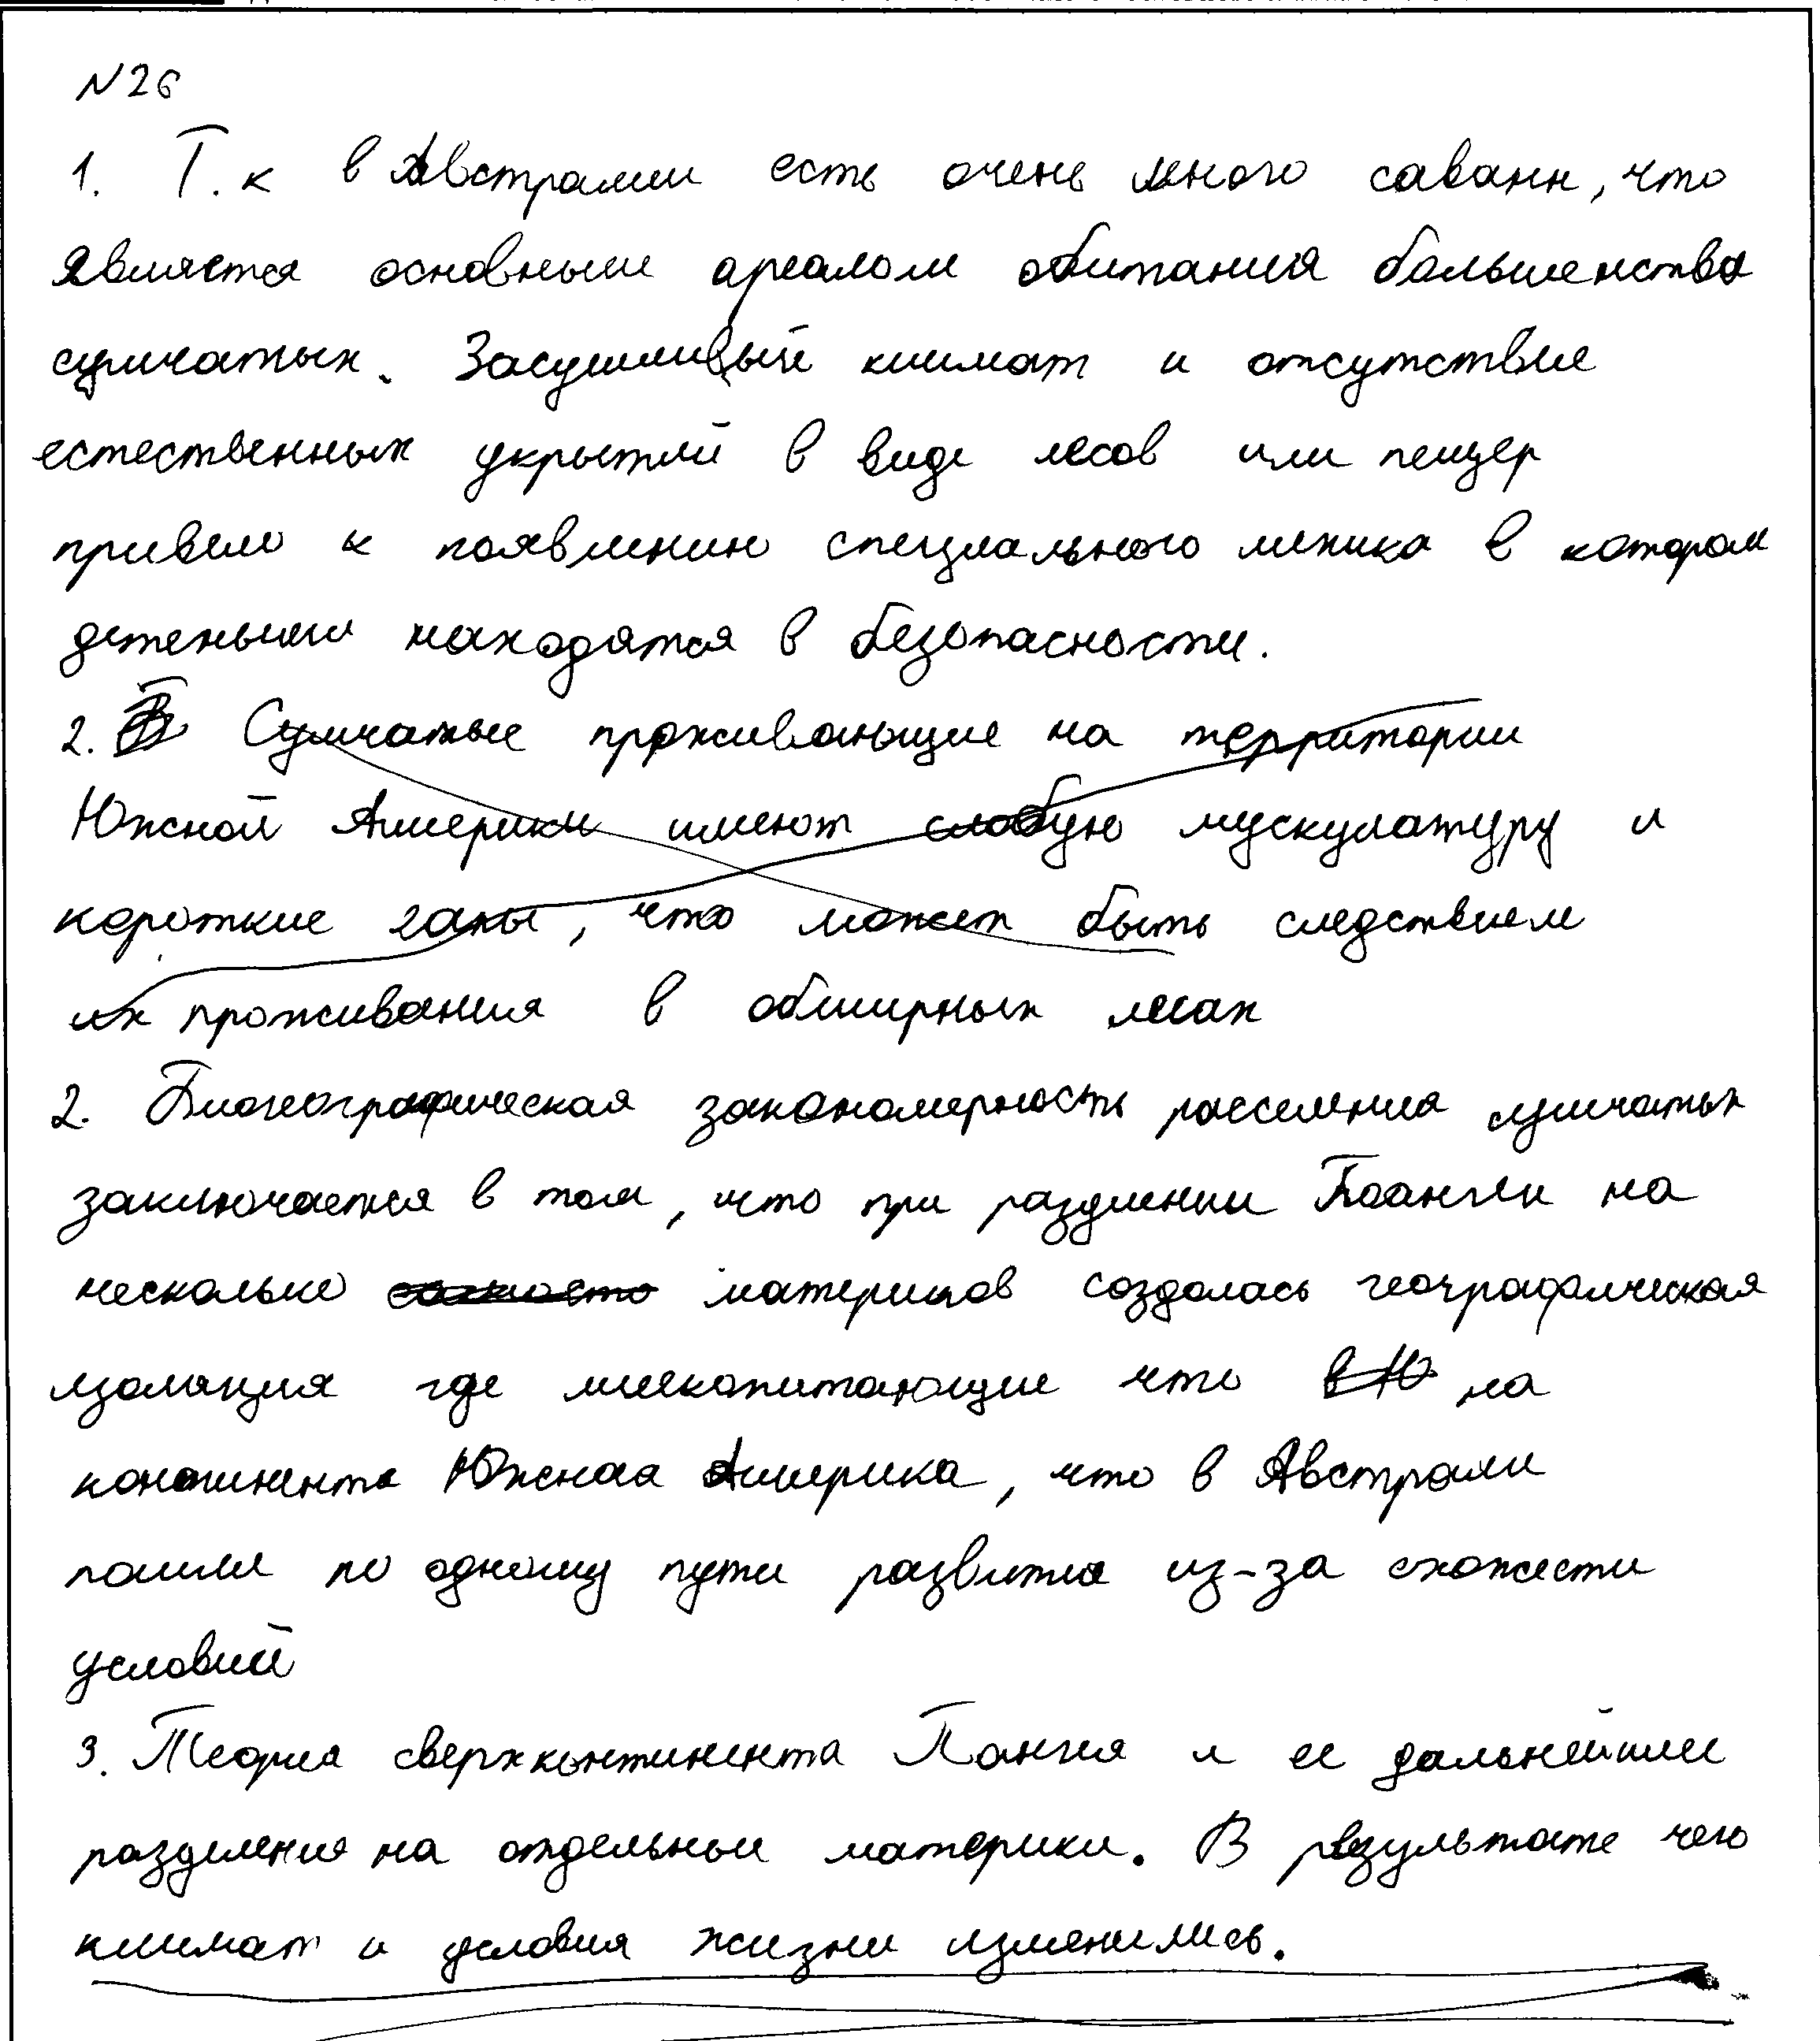 N26
1. Т.к в Австралии есть очень много саванн, что
является основным ареалом обитания большенства
сумчатых. Засушливый климат и отсутствие
естественных укрытий в виде лесов или пещер
привело к появлению специального мешка в котором
детеныши находятся в безопасности.
2. Сумчатые проживающие на территории
Южной Америки имеют слабую мускулатуру и
короткие лапы, что может быть следствием
их проживания в обширных лесах
2. Биогеографическая закономерность расселения сумчатых
заключается в том, что при разделении Пангеи на
несколько материков создалась географическая
изоляция где млекопитающие что на
континенте Южная Америка, что в Австралии
пошли по одному пути развития из-за схожести
условий
3. Теория сверхконтинента Пангея и ее дальнейшее
разделения на отдельные материки. В результате чего
климат и условия жизни изменились.